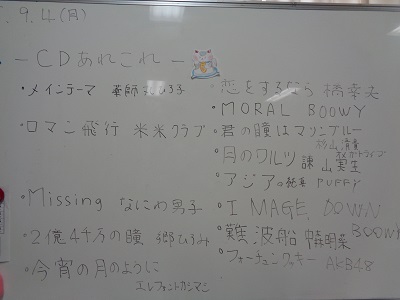 9.4(月)
- CDあれこれ -
・メインテーマ 薬師丸ひろ子
・ロマン飛行 米米クラブ
・Missing なにわ男子
・2億4千万の瞳 郷ひろみ
・今宵の月のように
エレファントカシマシ
・恋をするなら 橋幸夫
・MORAL BOOWY
・君の瞳はマリンブルー
杉山清貴
オメガトライブ
・月のワルツ 諫山実生
・アジアの純真 PUFFY
・IMAGE DOWN
BOOWY
・難波船 中森明菜
・フォーチュンクッキー AKB48